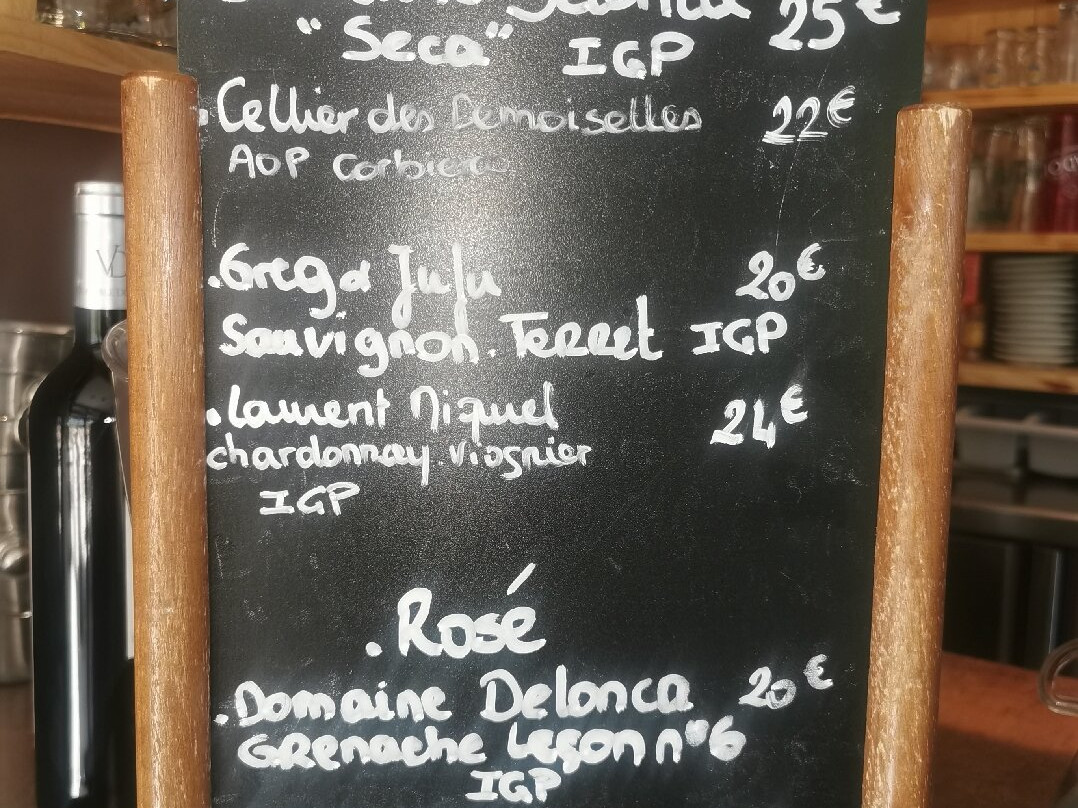 25€
"Seca" IGP
.Cellier des Demoiselles 22€
AOP Corbières
.Greg & Juju 20€
Sauvignon.Terret IGP
.Laurent Miquel 24€
chardonnay.viognier
IGP
.Rosé
.Domaine Delonca 20€
Grenache Leçon n°6
IGP